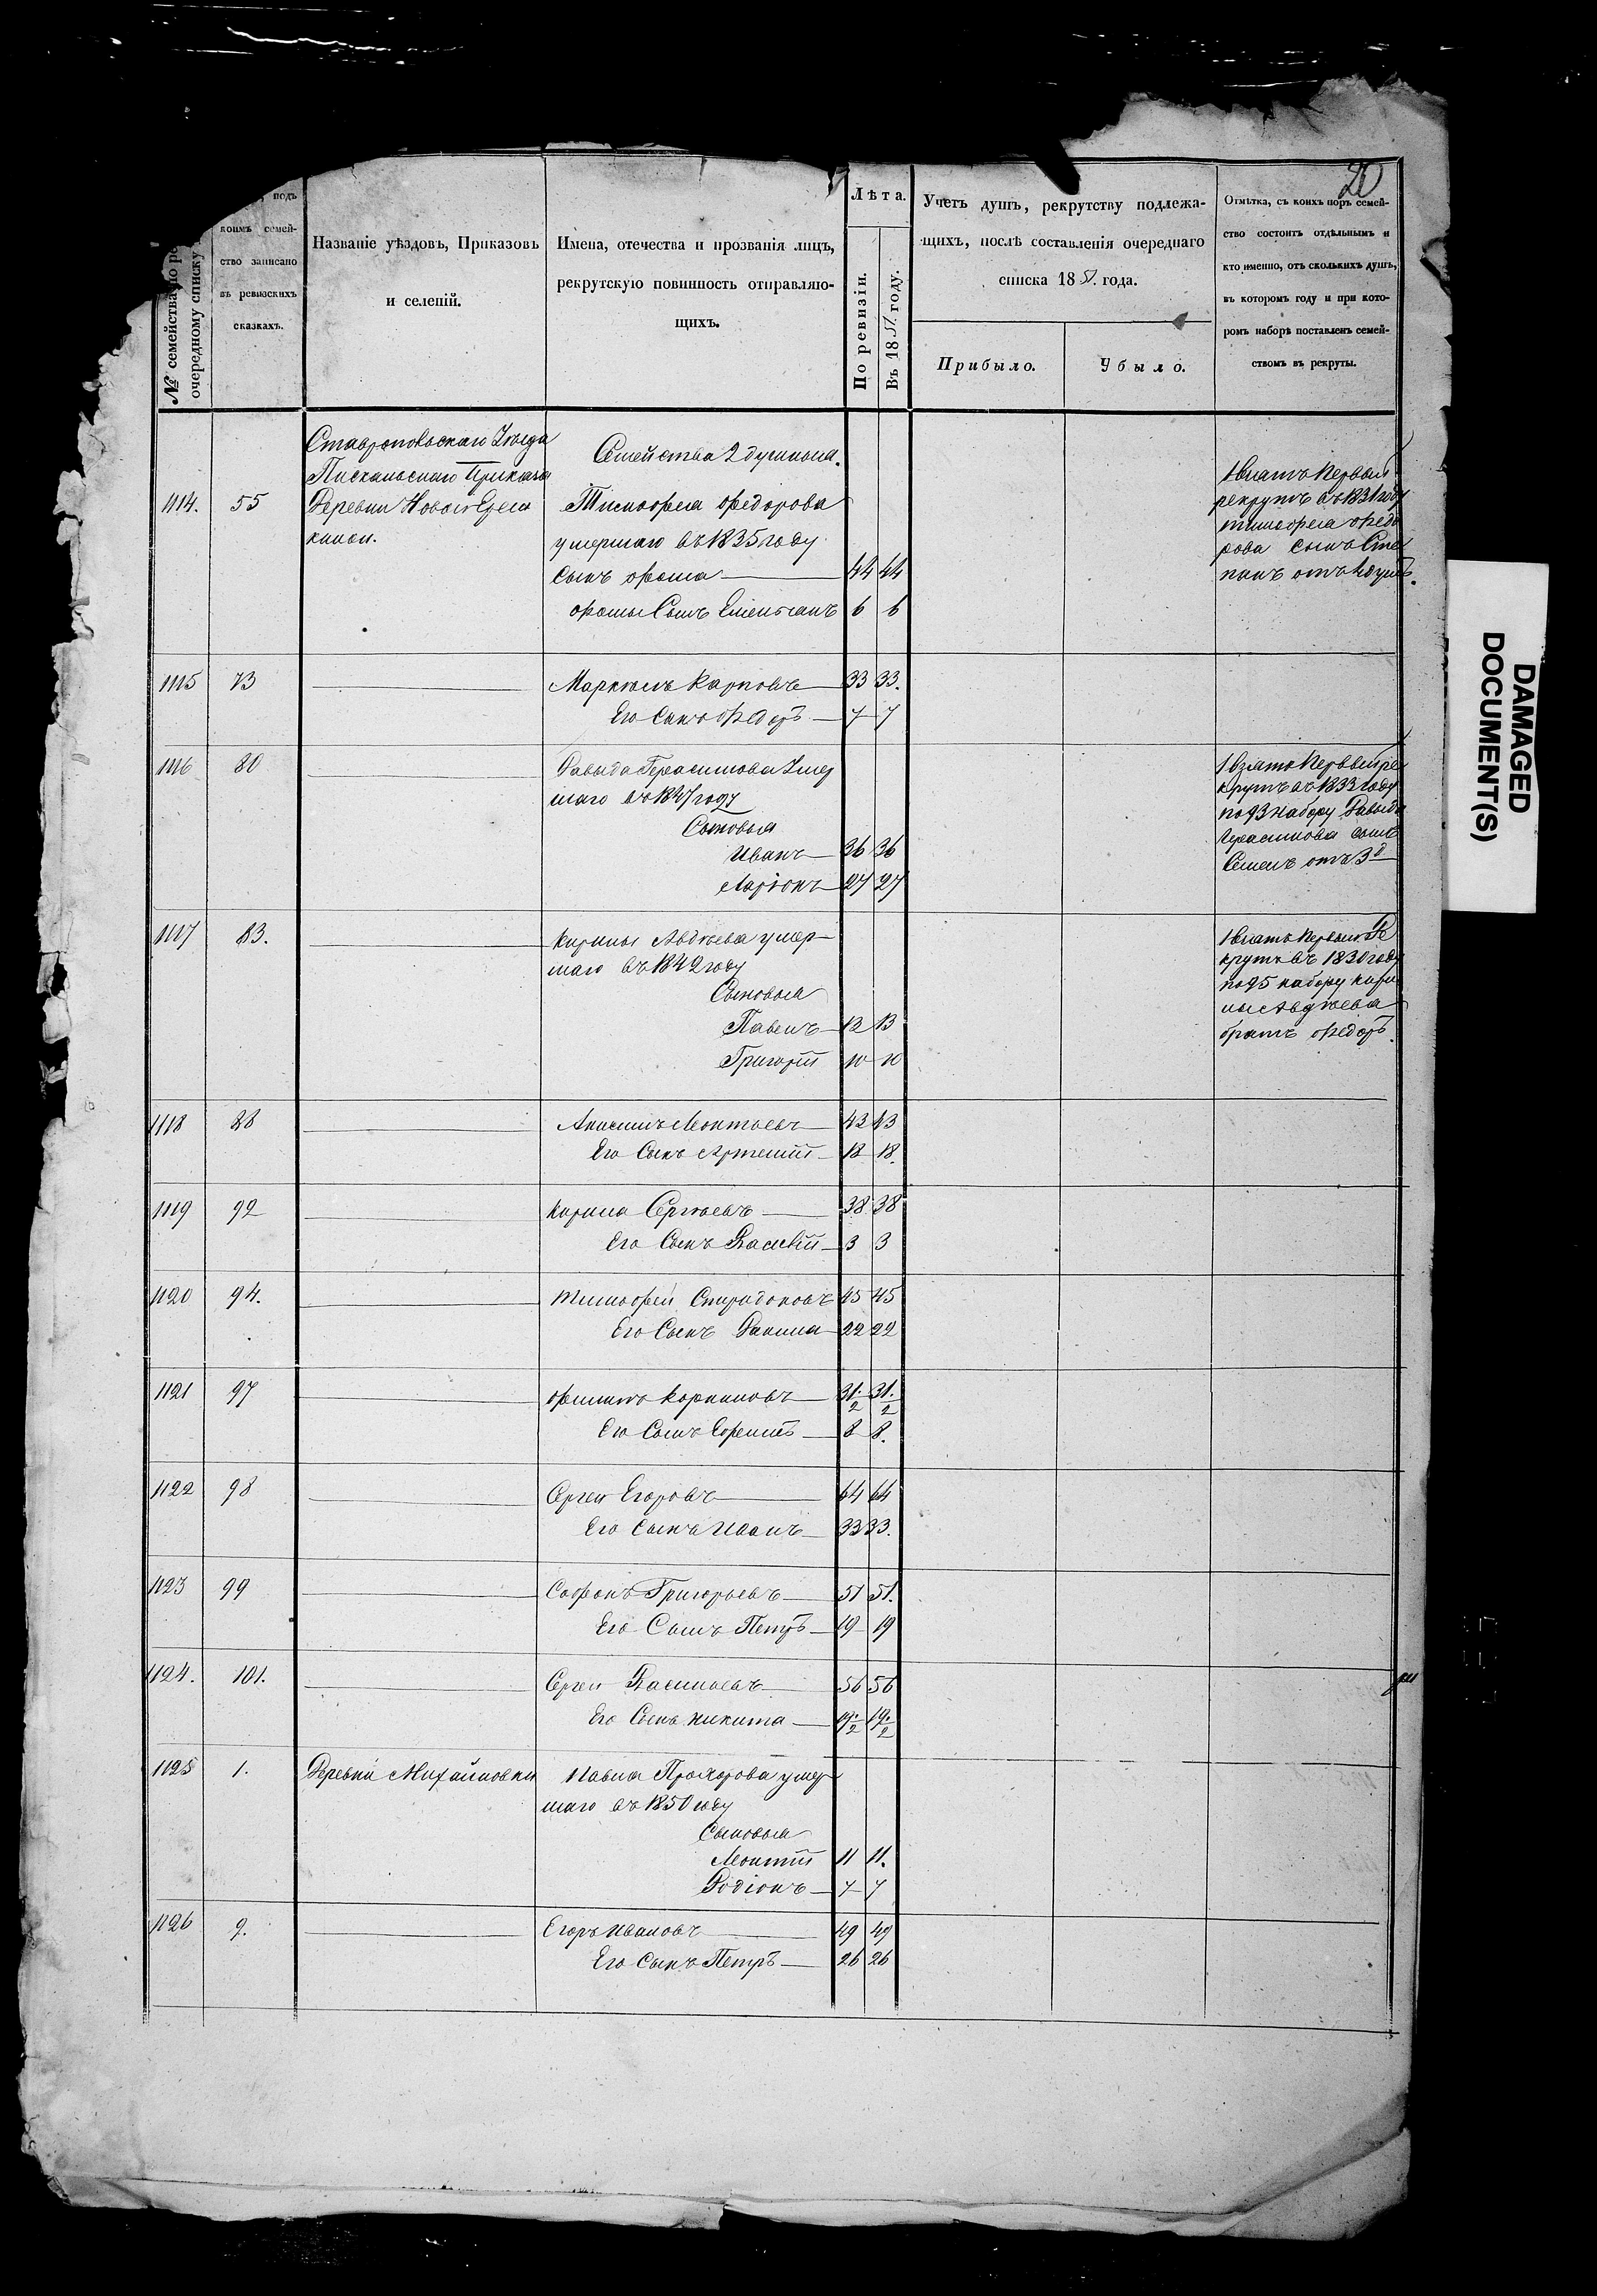 20
№ семейства по
очередному списку
подъ
коимъ семей-
ство записано
въ ревизскихъ
сказкахъ.
Названіе уѣздовъ, Приказовъ
и селеній.
Имена, отечества и прозванія лицъ,
рекрутскую повинность отправляю-
щихъ.
Лѣта.
По ревизіи.
Въ 1851 году.
Учетъ душъ, рекрутству подлежа-
щихъ, послѣ составленія очереднаго
списка 1851. года.
Прибыло.
Убыло.
Отмѣтка, съ коихъ поръ семей-
ство состоитъ отдѣльнымъ и
кто именно, отъ сколькихъ душъ,
въ которомъ году и при кото-
ромъ наборѣ поставленъ семей-
ствомъ въ рекруты.
Ставропольскаго Уѣзда
Пискальскаго Приказа
Деревни Новой Ере
кипой.
Семейства 2 душныя.
1114. 55 Тимофея Федорова
умершаго въ 1835 году
сынъ Фома 44 44
Фомы Сынъ Емельянъ 6 6
взятъ первый
рекрутъ въ 1831 году
тимофея Федо
рова сынъ Сте
панъ отъ душъ.
1115 73 Маркелъ Карповъ 33 33.
Его Сынъ Федоръ 7 7
1116 80 Давыда Герасимова Умер
шаго въ 1847 году
Сыновья
Иванъ 36 36
Ларіонъ 27 27
1 взятъ Первый ре
крутъ въ 1833 году
по 93 набору Давыда
Герасимова сынъ
Семенъ отъ 3 д
1117 83. Кирилы Авдѣева умер
шаго въ 1842 году
Сыновья
Павелъ 13 13
Григорій 10 10
1 взятъ Первый Ре
крутъ въ 1830 году
по 95 набору кири
лы Авдѣева
братъ Федоръ.
1118 88 Анисимъ Леонтьевъ 43 43
Его Сынъ Артемій 18 18.
1119 92 Кирила Сергѣевъ 38 38
Его Сынъ Василій 3 3
1120 94. Тимофей Спиридоновъ 45 45
Его Сынъ Данила 22 22
1121 97 Филипъ Корниловъ 31.½ 31.½
Его Сынъ Ефремъ 8 8.
1122 98 Сергей Егоровъ 64 64
Его Сынъ Иванъ 33 33.
1123 99 Софонъ Григорьевъ 51 51.
Его Сынъ Петръ 19 19
1124. 101. Сергей Васильевъ 56 56
Его Сынъ Никита 19.½ 19.½
1125 1. Деревни Михайловки Павла Прохорова умер
шаго въ 1850 году
Сыновья
Леонтій 11 11.
Родіонъ 7 7
1126 9. Егоръ Ивановъ 49 49
Его Сынъ Петръ 26 26
DAMAGED
DOCUMENT(S)